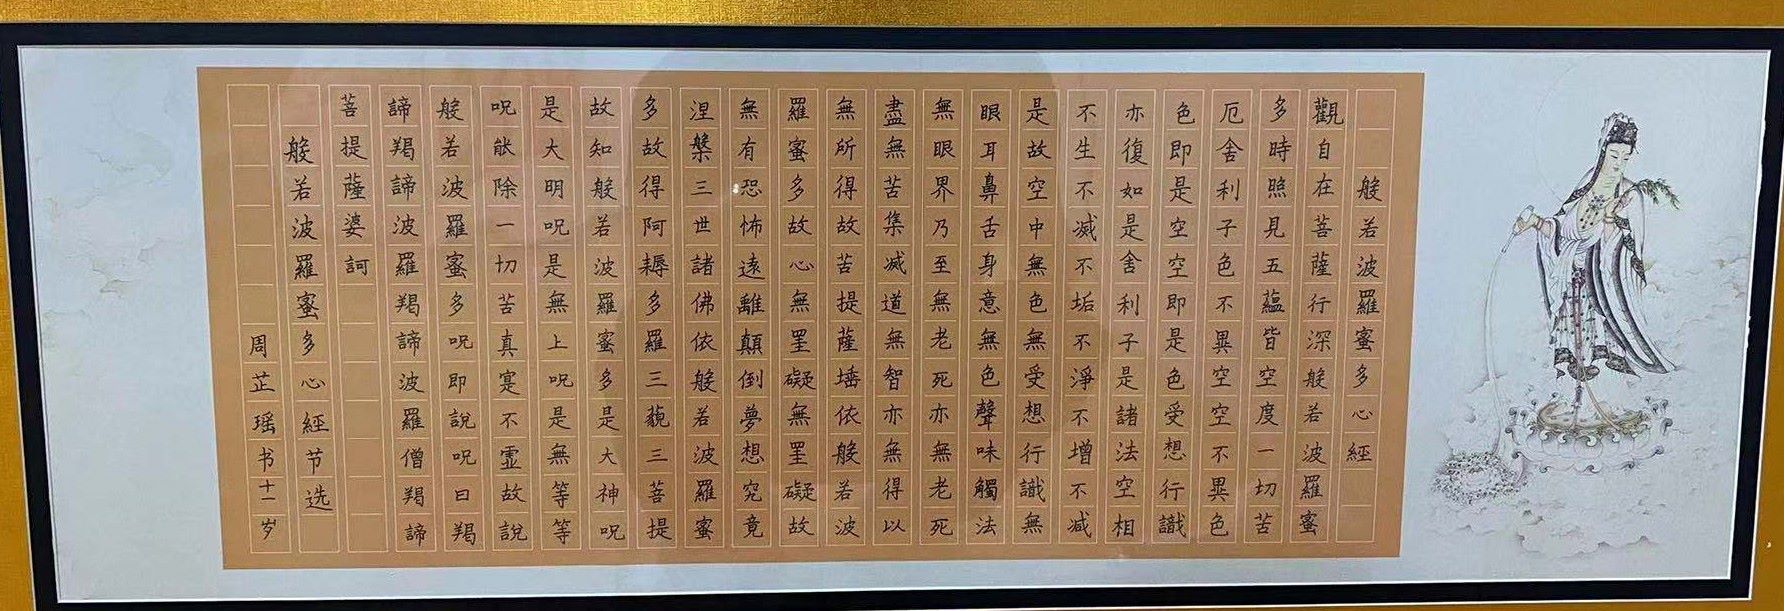 般若波羅蜜多心經
觀自在菩薩行深般若波羅蜜
多時照見五蘊皆空度一切苦
厄舍利子色不異空空不異色
色即是空空即是色受想行識
亦復如是舍利子是諸法空相
不生不滅不垢不淨不增不减
是故空中無色無受想行識無
眼耳鼻舌身意無色聲味觸法
無眼界乃至無老死亦無老死
盡無苦集滅道無智亦無得以
無所得故苦提薩埵依般若波
羅蜜多故心無罣礙無罣礙故
無有恐怖遠離顛倒夢想究竟
涅槃三世諸佛依般若波羅蜜
多故得阿耨多羅三藐三菩提
故知般若波羅蜜多是大神呪
是大明呪是無上呪是無等等
呪能除一切苦真寔不虛故說
般若波羅蜜多呪即說呪曰羯
諦羯諦波羅羯諦波羅僧羯諦
菩提薩婆訶
般若波羅蜜多心經节选
周芷瑶书十一岁